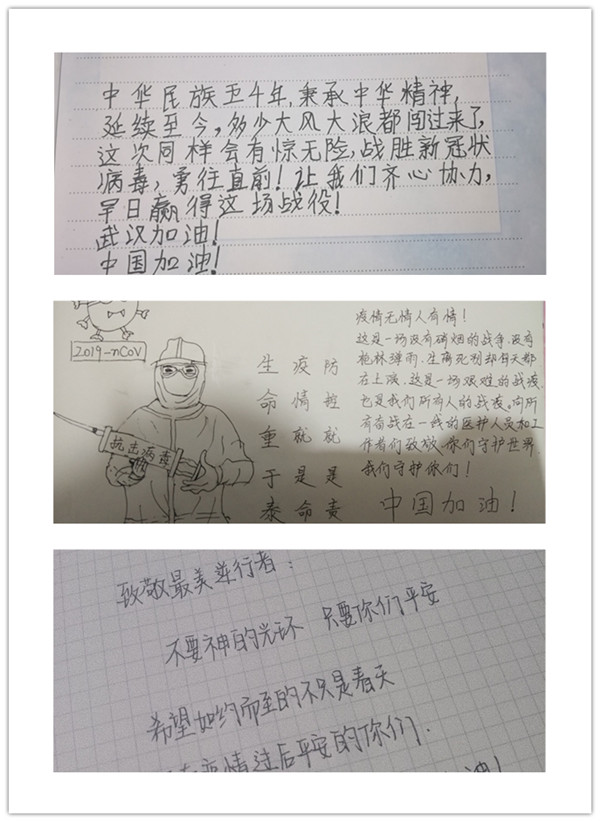 中华民族五千年,秉承中华精神,
延续至今,多少大风大浪都闯过来了,
这次同样会有惊无险,战胜新冠状
病毒,勇往直前!让我们齐心协力,
早日赢得这场战役!
武汉加油!
中国加油!
2019-nCoV
抗击病毒
生命重于泰
疫情就是命
防控就是责
疫情无情人有情!
这是一场没有硝烟的战争,没有
枪林弹雨.生离死别却每天都
在上演.这是一场艰难的战疫
也是我们所有人的战疫。向所
有奋战在一线的医护人员和工
作者们致敬,你们守护世界
我们守护你们!
中国加油!
致敬最美逆行者:
不要神的光环 只要你们平安
希望如约而至的不只是春天
疫情过后平安的你们.